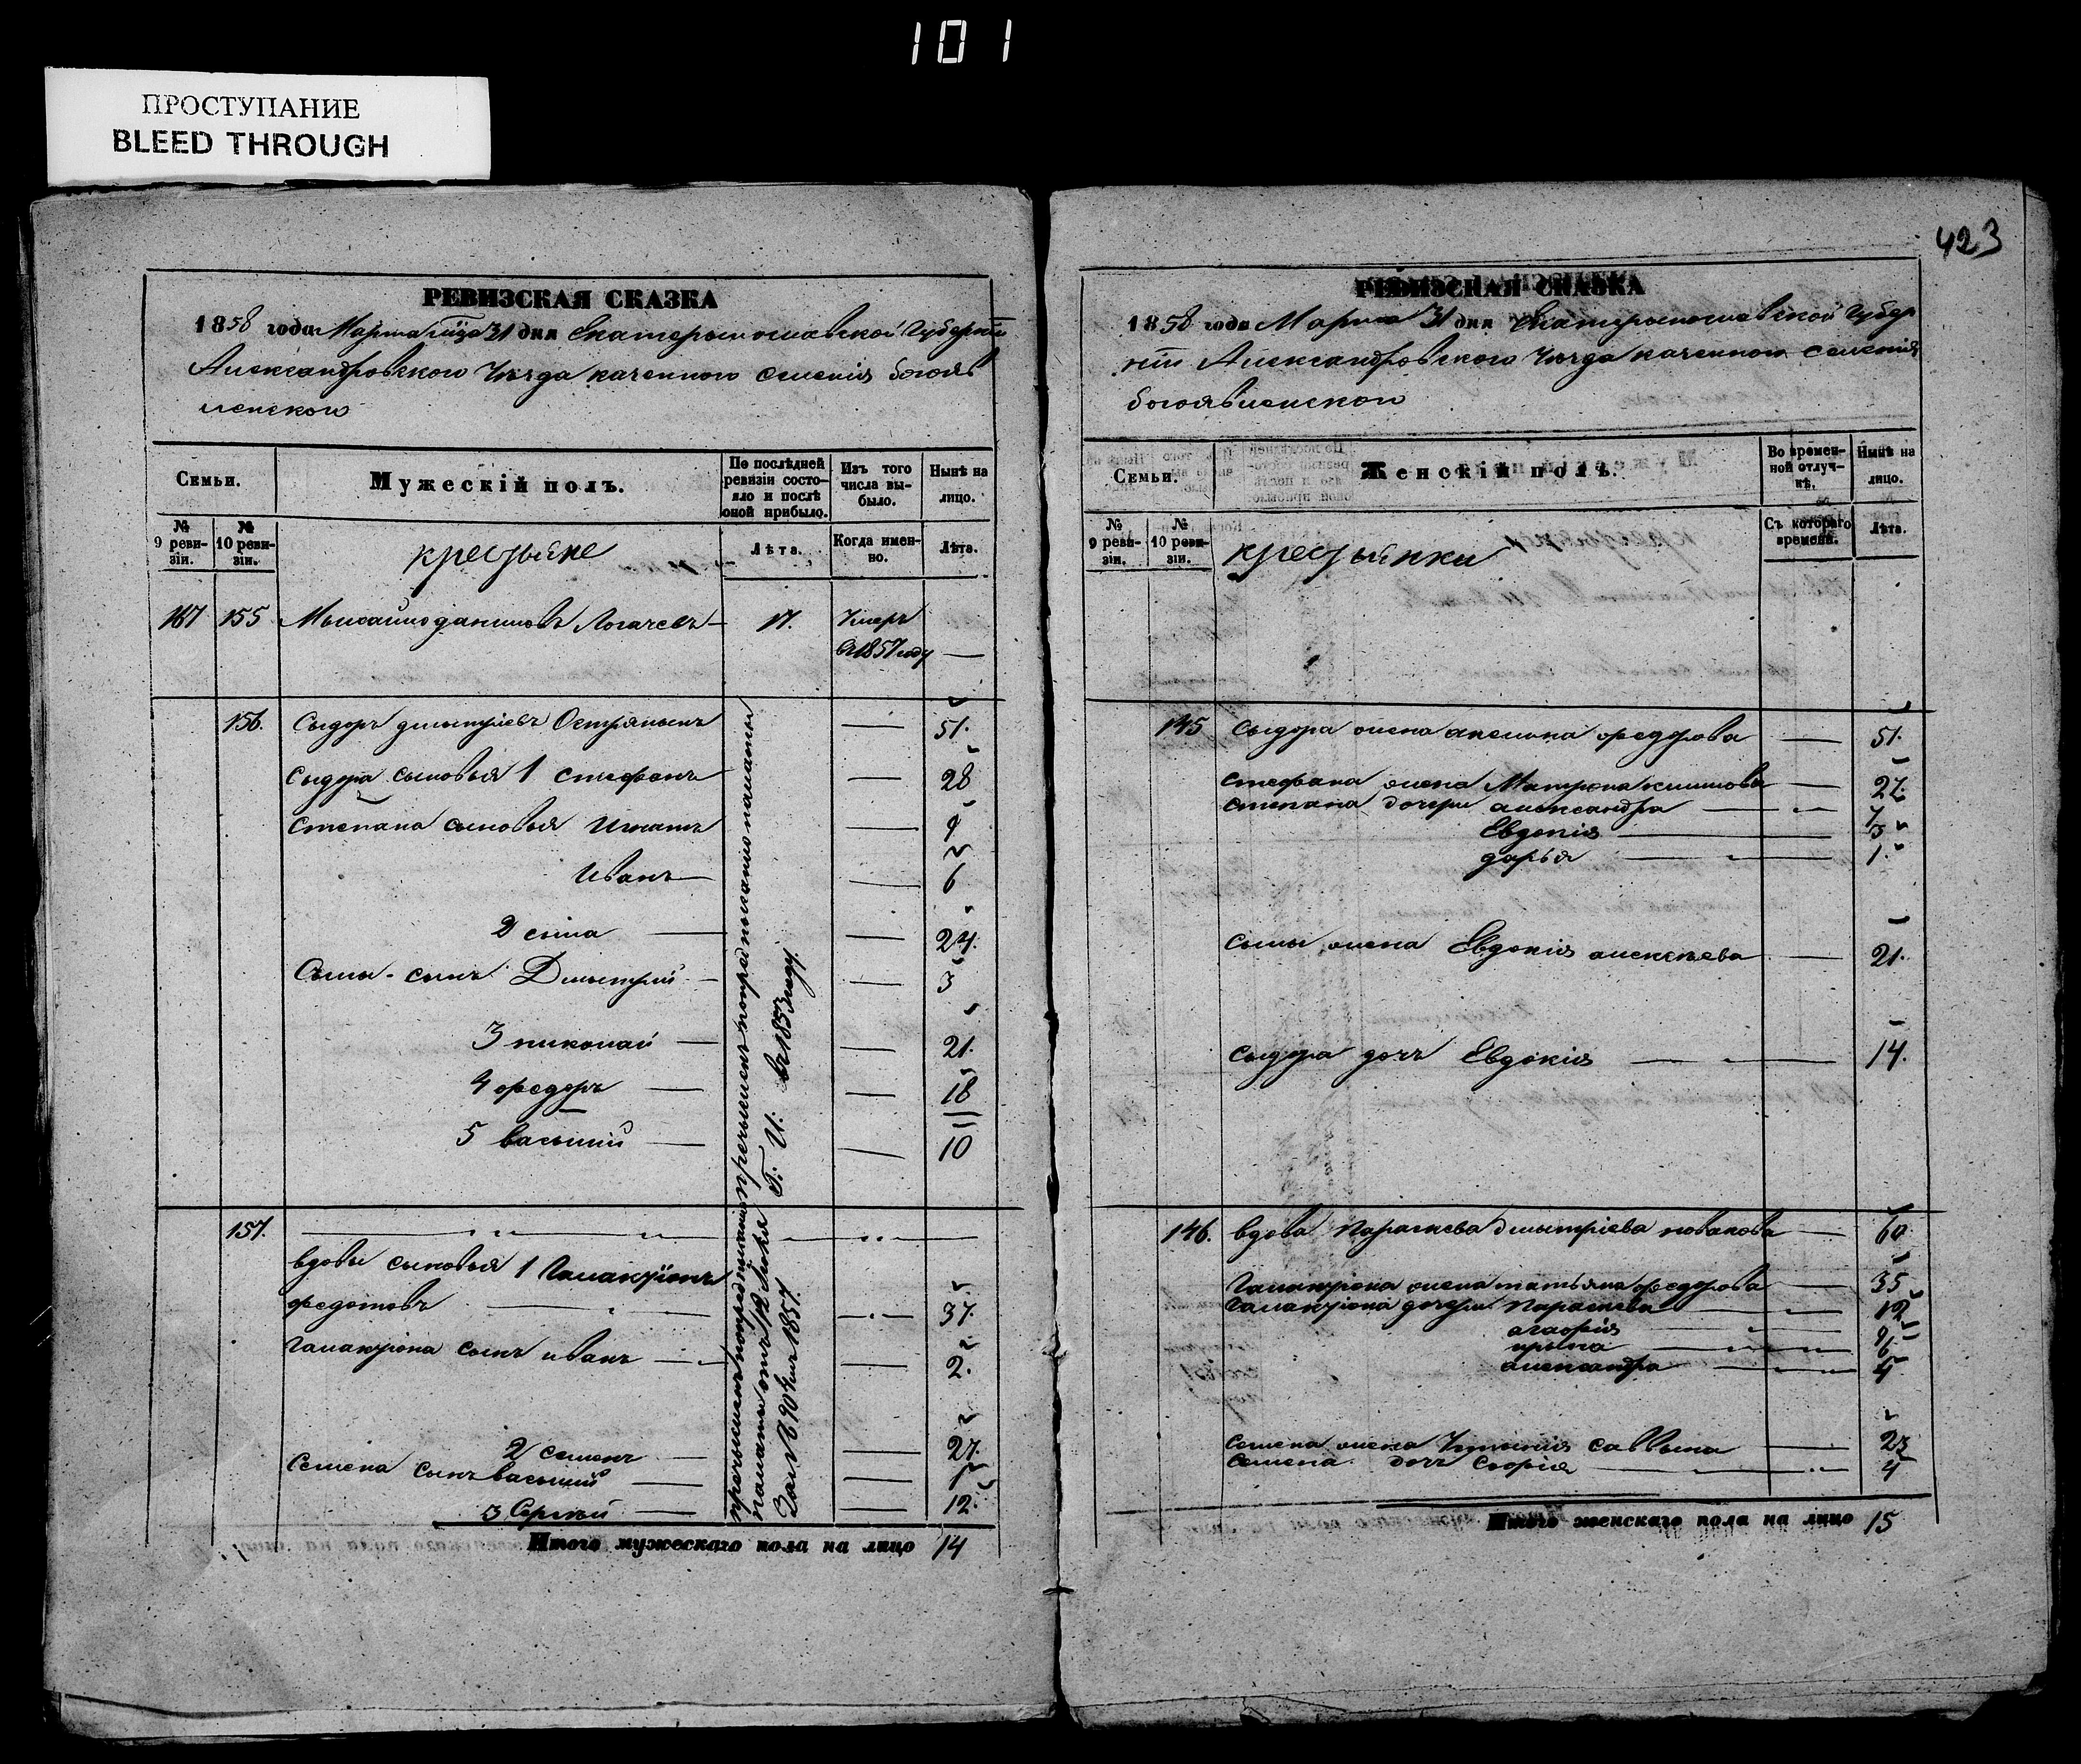 101
ПРОСТУПАНИЕ
BLEED THROUGH
РЕВИЗСКАЯ СКАЗКА
1858 года Марта 31 дня Екатерынославской Губерніи
Александровского Уезда казенного селенія богояв
ленского
Семьи.
Мужескій полъ.
По послѣдней ревизіи состояло и послѣ оной прибыло.
Изъ того числа выбыло.
Нынѣ на лицо.
№ 9 ревизіи.
№ 10 ревизіи.
крестьяне
Лѣта.
Когда именно.
Лѣта.
167 155 Логачевъ 17. Умеръ
в 1857 году —
156. Сыдоръ дмытріевъ Остряныцъ — 51.
Сыдора сыновья 1 стефанъ — 28
Степана сыновья Игнатъ — 9
Иванъ — 6
2 сыла — 24.
Сылы - сынъ Дмытрій — 3
3 николай — 21.
4 федоръ — 18
5 василий — 10
157.
вдовы сыновья 1 Галактіонъ
федотовъ — 37.
Галактіона сынъ иванъ — 2.
2 семенъ — 27.
Семена сынъ василий —
3 Сергей — 12.
в 1853 году.
Итого мужескаго пола на лицо 14
423
РЕВИЗСКАЯ СКАЗКА
1858 года Марта 31 дня Екатерынославской Губер
ніи Александровского Уезда казенного селенія
богоявленского
Семьи.
Женскій полъ.
Во временной отлучкѣ.
Нынѣ на лицо.
№ 9 ревизіи.
№ 10 ревизіи.
крестьянки
Съ котораго времени.
Лѣта.
145 Сыдора жена акелина федорова — 51.
стефана жена Матрона климова — 27.
степана дочери александра — 7
Евдокія — 3
дарья — 1.
сылы жена Евдокія алексеева — 21.
сыдора дочь Евдокія — 14.
146. вдова Параскева дмытріева новакова — 60
Галактіона жена татьяна федорова — 35
Галактіона дочери Параскева — 12
агафія
ирына
александра
семена жена саввына
семена дочь Софія — 4
Итого женскаго пола на лицо 15